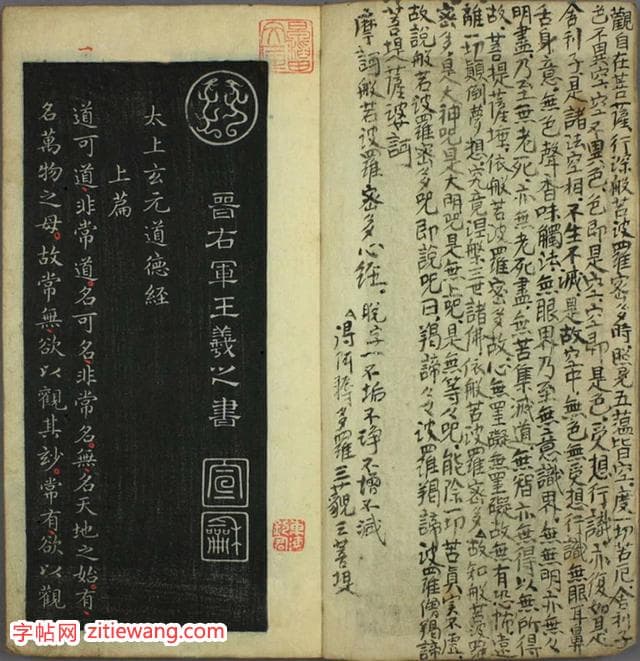 觀自在菩薩。行深般若波羅密多時。照見五蘊皆空。度一切苦厄。舍利子
色不異空。空不異色。色即是空。空即是色。受想行識。亦復如是。
舍利子。是諸法空相。不生不滅。是故空中。無色無受想行識。無眼耳鼻
舌身意。無色聲香味觸法。無眼界乃至無意識界。無無明亦無々
明盡乃至無老死。亦無老死盡。無苦集滅道。無智亦無得。以無所得
故菩提薩埵。依般若波羅密多故。心無罣礙。無罣礙故。無有恐怖。遠
離一切顛倒夢想。究竟涅槃。三世諸佛。依般若波羅密多故。知般若波羅
密多是大神咒是大明咒是無上咒是無等々咒。能除一切苦。真實不虛
故說般若波羅密多咒。即說咒曰。揭諦々々。波羅揭諦。波羅僧揭諦
菩提薩婆訶
摩訶般若波羅密多心經。脫字一不垢不淨不增不減
得阿耨多羅三藐三菩提
晉右軍王羲之書
宣龢
太上玄元道德經
上篇
道可道。非常道。名可名。非常名。無名天地之始。有
名萬物之母。故常無。欲以觀其妙。常有。欲以觀
一
字帖网 zitiewang.com